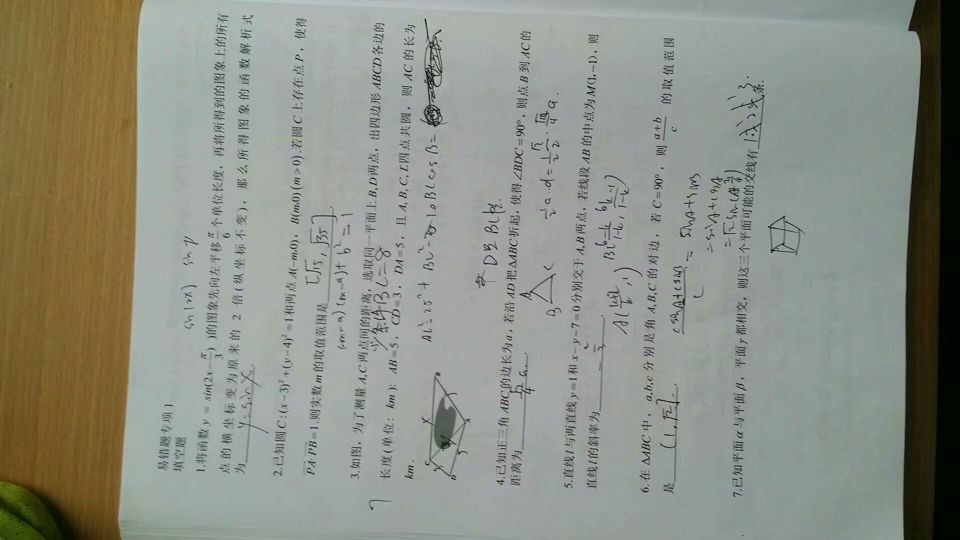 易错题专项 1
填空题
sin(2x) sin
1.将函数 y = sin(2x − π/3) )的图象先向左平移 π/6 个单位长度，再将所得到的图象上的所有
点的横坐标变为原来的 2 倍(纵坐标不变)，那么所得图象的函数解析式
为 y=sinx
2.已知圆C:(x−3)²+(y−4)²=1和两点A(−m,0)，B(m,0)(m>0).若圆C上存在点P，使得
PA·PB=1,则实数m的取值范围是 [√15,√35]
+b²=1
3.如图，为了测量A,C两点间的距离，选取同一平面上B,D两点，出四边形ABCD各边的
长度(单位：km)：AB=5，CD=3，DA=5，且A,B,C,D四点共圆，则AC的长为
7
km.
4.已知正三角ABC的边长为a，若沿AD把△ABC折起，使得∠BDC=90°，则点B到AC的
距离为
5.直线l与两直线y=1和x−y−7=0分别交于A,B两点，若线段AB的中点为M(1,−1)，则
直线l的斜率为
6.在△ABC中，a,b,c分别是角A,B,C的对边，若C=90°，则 (a+b)/c 的取值范围
是 (1,√2]
= sinA+sinB
= sinA+cosA
7.已知平面α与平面β，平面γ都相交，则这三个平面可能的交线有 条.